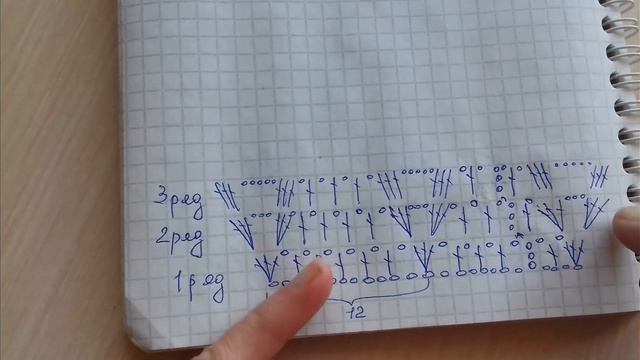 3 ряд
2 ряд
1 ряд
12